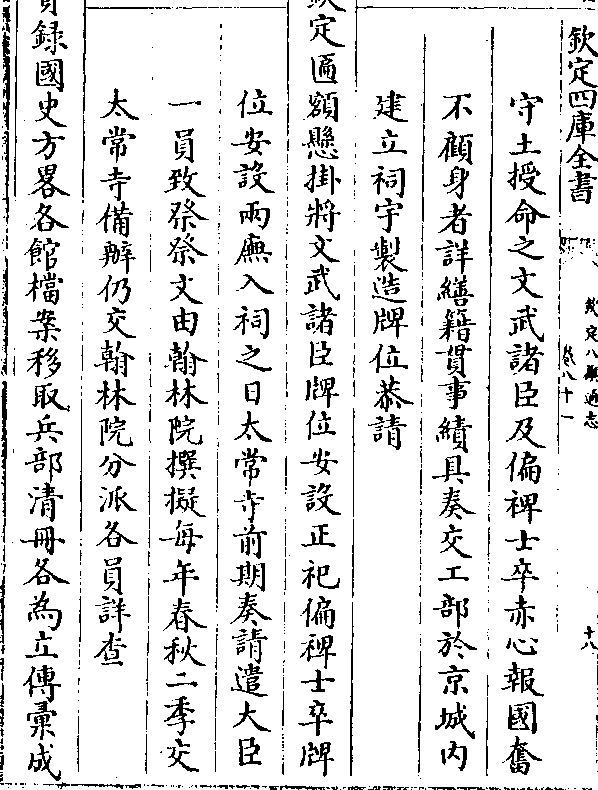 欽定四庫全書
欽定八旗通志
卷八十一
十八
守土授命之文武諸臣及偏裨士卒赤心報國奮
不顧身者詳繕籍貫事績具奏交工部於京城内
建立祠宇製造牌位恭請
欽定匾額懸掛將文武諸臣牌位安設正祀偏裨士卒牌
位安設兩廡入祠之日太常寺前期奏請遣大臣
一員致祭祭文由翰林院撰擬每年春秋二季交
太常寺備辦仍交翰林院分派各員詳查
錄國史方畧各館檔案移取兵部清冊各為立傳彚成